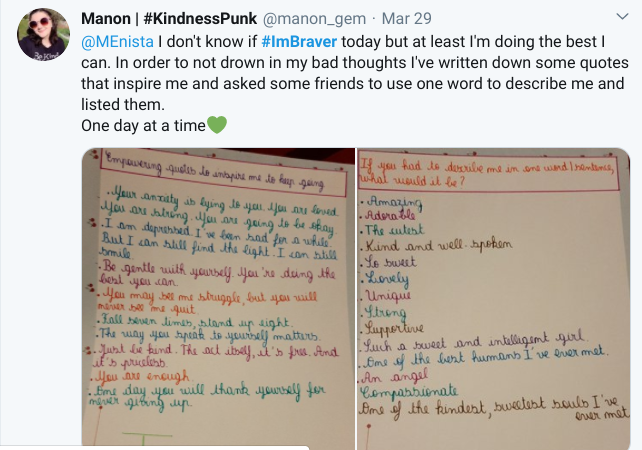 Manon | #KindnessPunk @manon_gem · Mar 29
@MEnista I don't know if #ImBraver today but at least I'm doing the best I
can. In order to not drown in my bad thoughts I've written down some quotes
that inspire me and asked some friends to use one word to describe me and
listed them.
One day at a time
Empowering quotes to inspire me to keep going
. Your anxiety is lying to you. You are loved.
You are strong. You are going to be okay.
. I am depressed. I've been sad for a while.
But I can still find the light. I can still
smile.
. Be gentle with yourself. You're doing the
best you can.
. You may see me struggle, but you will
never see me quit.
. Fall seven times, stand up eight.
. The way you speak to yourself matters.
. Just be kind. The act itself, it's free. And
it's priceless.
. You are enough.
. One day you will thank yourself for
never giving up.
If you had to describe me in one word/sentence,
what would it be?
. Amazing
. Adorable
. The cutest
. Kind and well-spoken
. So sweet
. Lovely
. Unique
. Strong
. Supportive
. Such a sweet and intelligent girl.
. One of the best humans I've ever met.
. An angel
. Compassionate
. One of the kindest, sweetest souls I've
ever met